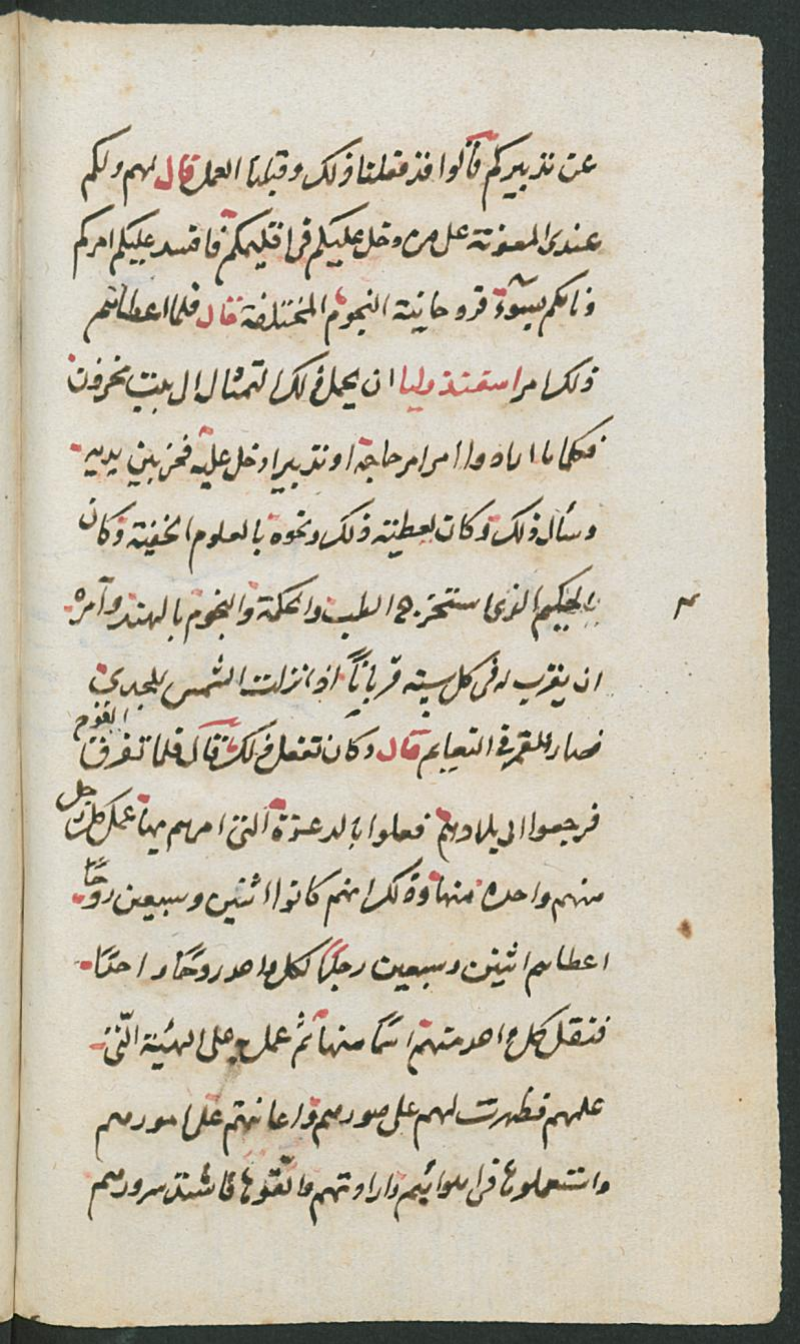 عن تدبيركم قالوا قد فعلنا ذلك وقبلنا العمل قال لهم ولكم
عندى المعونة على من دخل عليكم فى اقليمكم فافسد عليكم امركم
ونالكم بسوء وروحانية النجوم المختلفة قال فلما اعطاهم
ذلك امر ان يحمل ذلك التمثال الى بيت
فكلما ارادوا امرا من حاجة او تدبير ادخل عليه فخر بين يديه
وسأل ذلك وكان يعطيه ذلك ونحوه بالعلوم الخفية وكان
الحكيم الذى استخرج الطب والحكمة والنجوم بالهند وآمره
ان يقرب له فى كل سنة قربانًا اذا نزلت الشمس الجدى
فصار القمر فى النعايم قال وكان تفعل ذلك قال فلما تفرق القوم
فرجعوا الى بلادهم فعلوا بالدعوة التى امرهم بها عمل كل رجل
منهم واحده منها وذلك انهم كانوا اثنين وسبعين روحًا
اعطاهم اثنين وسبعين رجلًا لكل واحد روحًا واحدًا
فنقل كل واحد منهم اسمًا منها ثم عمل على الهيئة التى
علمهم فظهرت لهم على صورهم واعانتهم على امورهم
واستعملوها فى اهوائهم واراداتهم والقوها فاشتد سرورهم